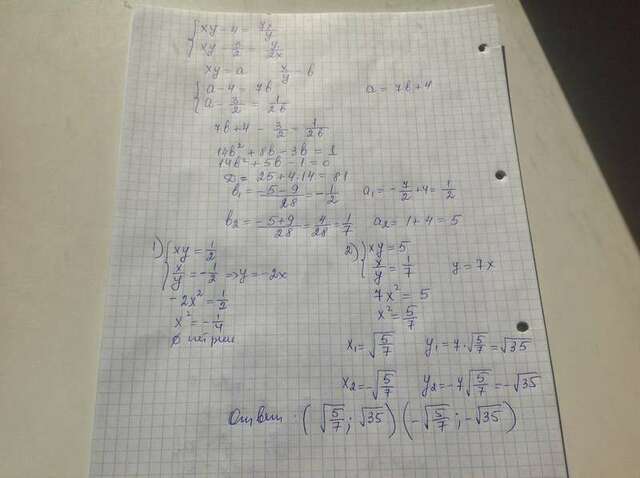 { xy - 4 = 7x/y
{ xy - 3/2 = y/2x
xy = a x/y = b
{ a - 4 = 7b a = 7b + 4
{ a - 3/2 = 1/2b
7b + 4 - 3/2 = 1/2b
14b² + 8b - 3b = 1
14b² + 5b - 1 = 0
D = 25 + 4·14 = 81
b₁ = -5-9/28 = -1/2 a₁ = -7/2 + 4 = 1/2
b₂ = -5+9/28 = 4/28 = 1/7 a₂ = 1 + 4 = 5
1) { xy = 1/2
{ x/y = -1/2 ⇒ y = -2x
-2x² = 1/2
x² = -1/4
∅ нет реш
2) { xy = 5
{ x/y = 1/7 y = 7x
7x² = 5
x² = 5/7
x₁ = √5/7 y₁ = 7·√5/7 = √35
x₂ = -√5/7 y₂ = -7√5/7 = -√35
Ответ: (√5/7; √35) (-√5/7; -√35)